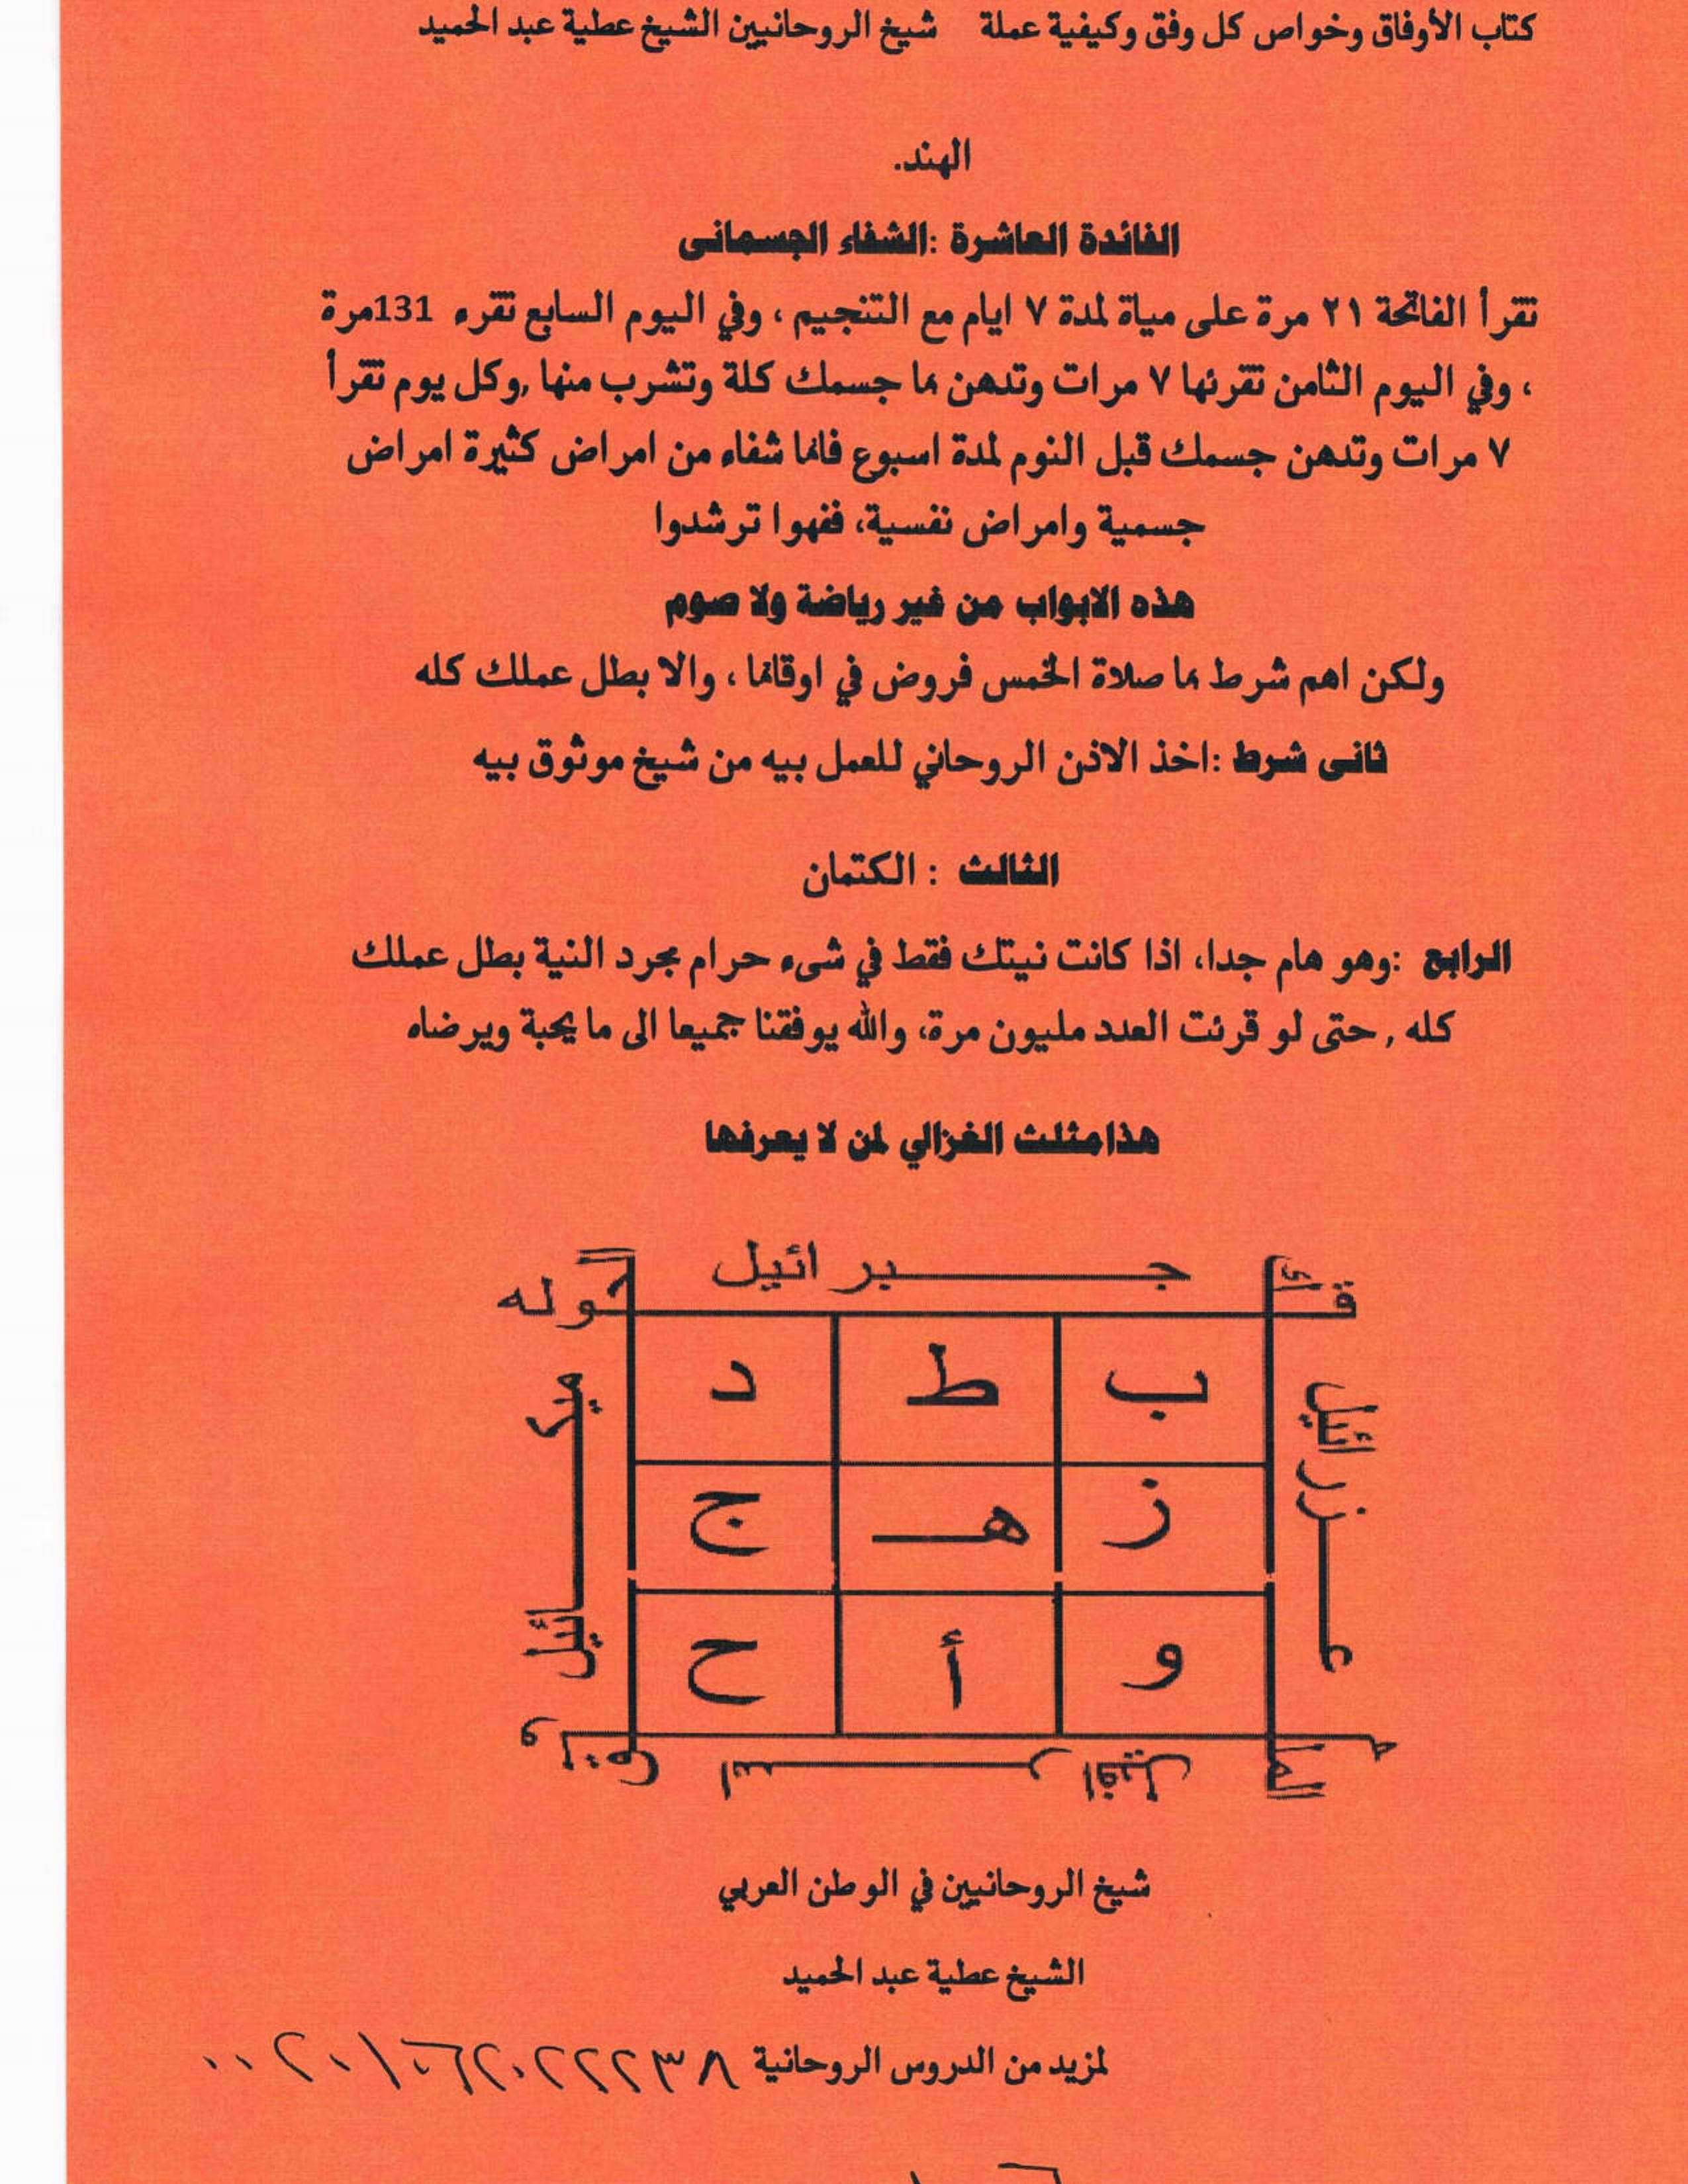 كتاب الأوفاق وخواص كل وفق وكيفية عملة شيخ الروحانيين الشيخ عطية عبد الحميد
الهند.
الفائدة العاشرة :الشفاء الجسمانى
تقرأ الفاتحة ٢١ مرة على مياة لمدة ٧ ايام مع التنجيم ، وفي اليوم السابع تقرء 131مرة
، وفي اليوم الثامن تقرئها ٧ مرات وتدهن بها جسمك كلة وتشرب منها ,وكل يوم تقرأ
٧ مرات وتدهن جسمك قبل النوم لمدة اسبوع فانها شفاء من امراض كثيرة امراض
جسمية وامراض نفسية، ففهوا ترشدوا
هذه الابواب من غير رياضة ولا صوم
ولكن اهم شرط بها صلاة الخمس فروض في اوقاتها ، والا بطل عملك كله
ثانى شرط :اخذ الاذن الروحاني للعمل بيه من شيخ موثوق بيه
الثالث : الكتمان
الرابع :وهو هام جدا، اذا كانت نيتك فقط في شىء حرام بمجرد النية بطل عملك
كله , حتى لو قرئت العدد مليون مرة، والله يوفقنا جميعا الى ما يحبة ويرضاه
هذامثلث الغزالي لمن لا يعرفها
جبرائيل
قوله
ب ط د
عزرائيل
ميكائيل
ز هـ ج
و أ ح
اسرافيل
شيخ الروحانيين في الوطن العربي
الشيخ عطية عبد الحميد
لمزيد من الدروس الروحانية